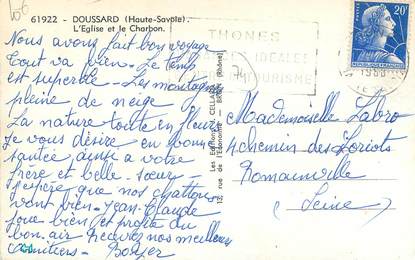 10€
61922 - DOUSSARD (Haute-Savoie).
L'Eglise et le Charbon.
THONES
IDEALES
TOURISME
20F
Nous avons fait bon voyage
tout va bien - Le temps
est superbe - Les montagnes
pleine de neige
La nature toute en fleurs
je vous désire en bonne
santée ainsi a votre
frère et belle-sœur -
J'espère que nos chattons
vont bien - Jean-Claude
joue bien et profite du
bon air Recevez nos meilleurs
amitiers - Boyer
Les Editions CELLARD - BRON (Rhône)
12, rue de l'Economie
Mademoiselle Labro
4 chemin des Loriots
Romainville
(Seine)